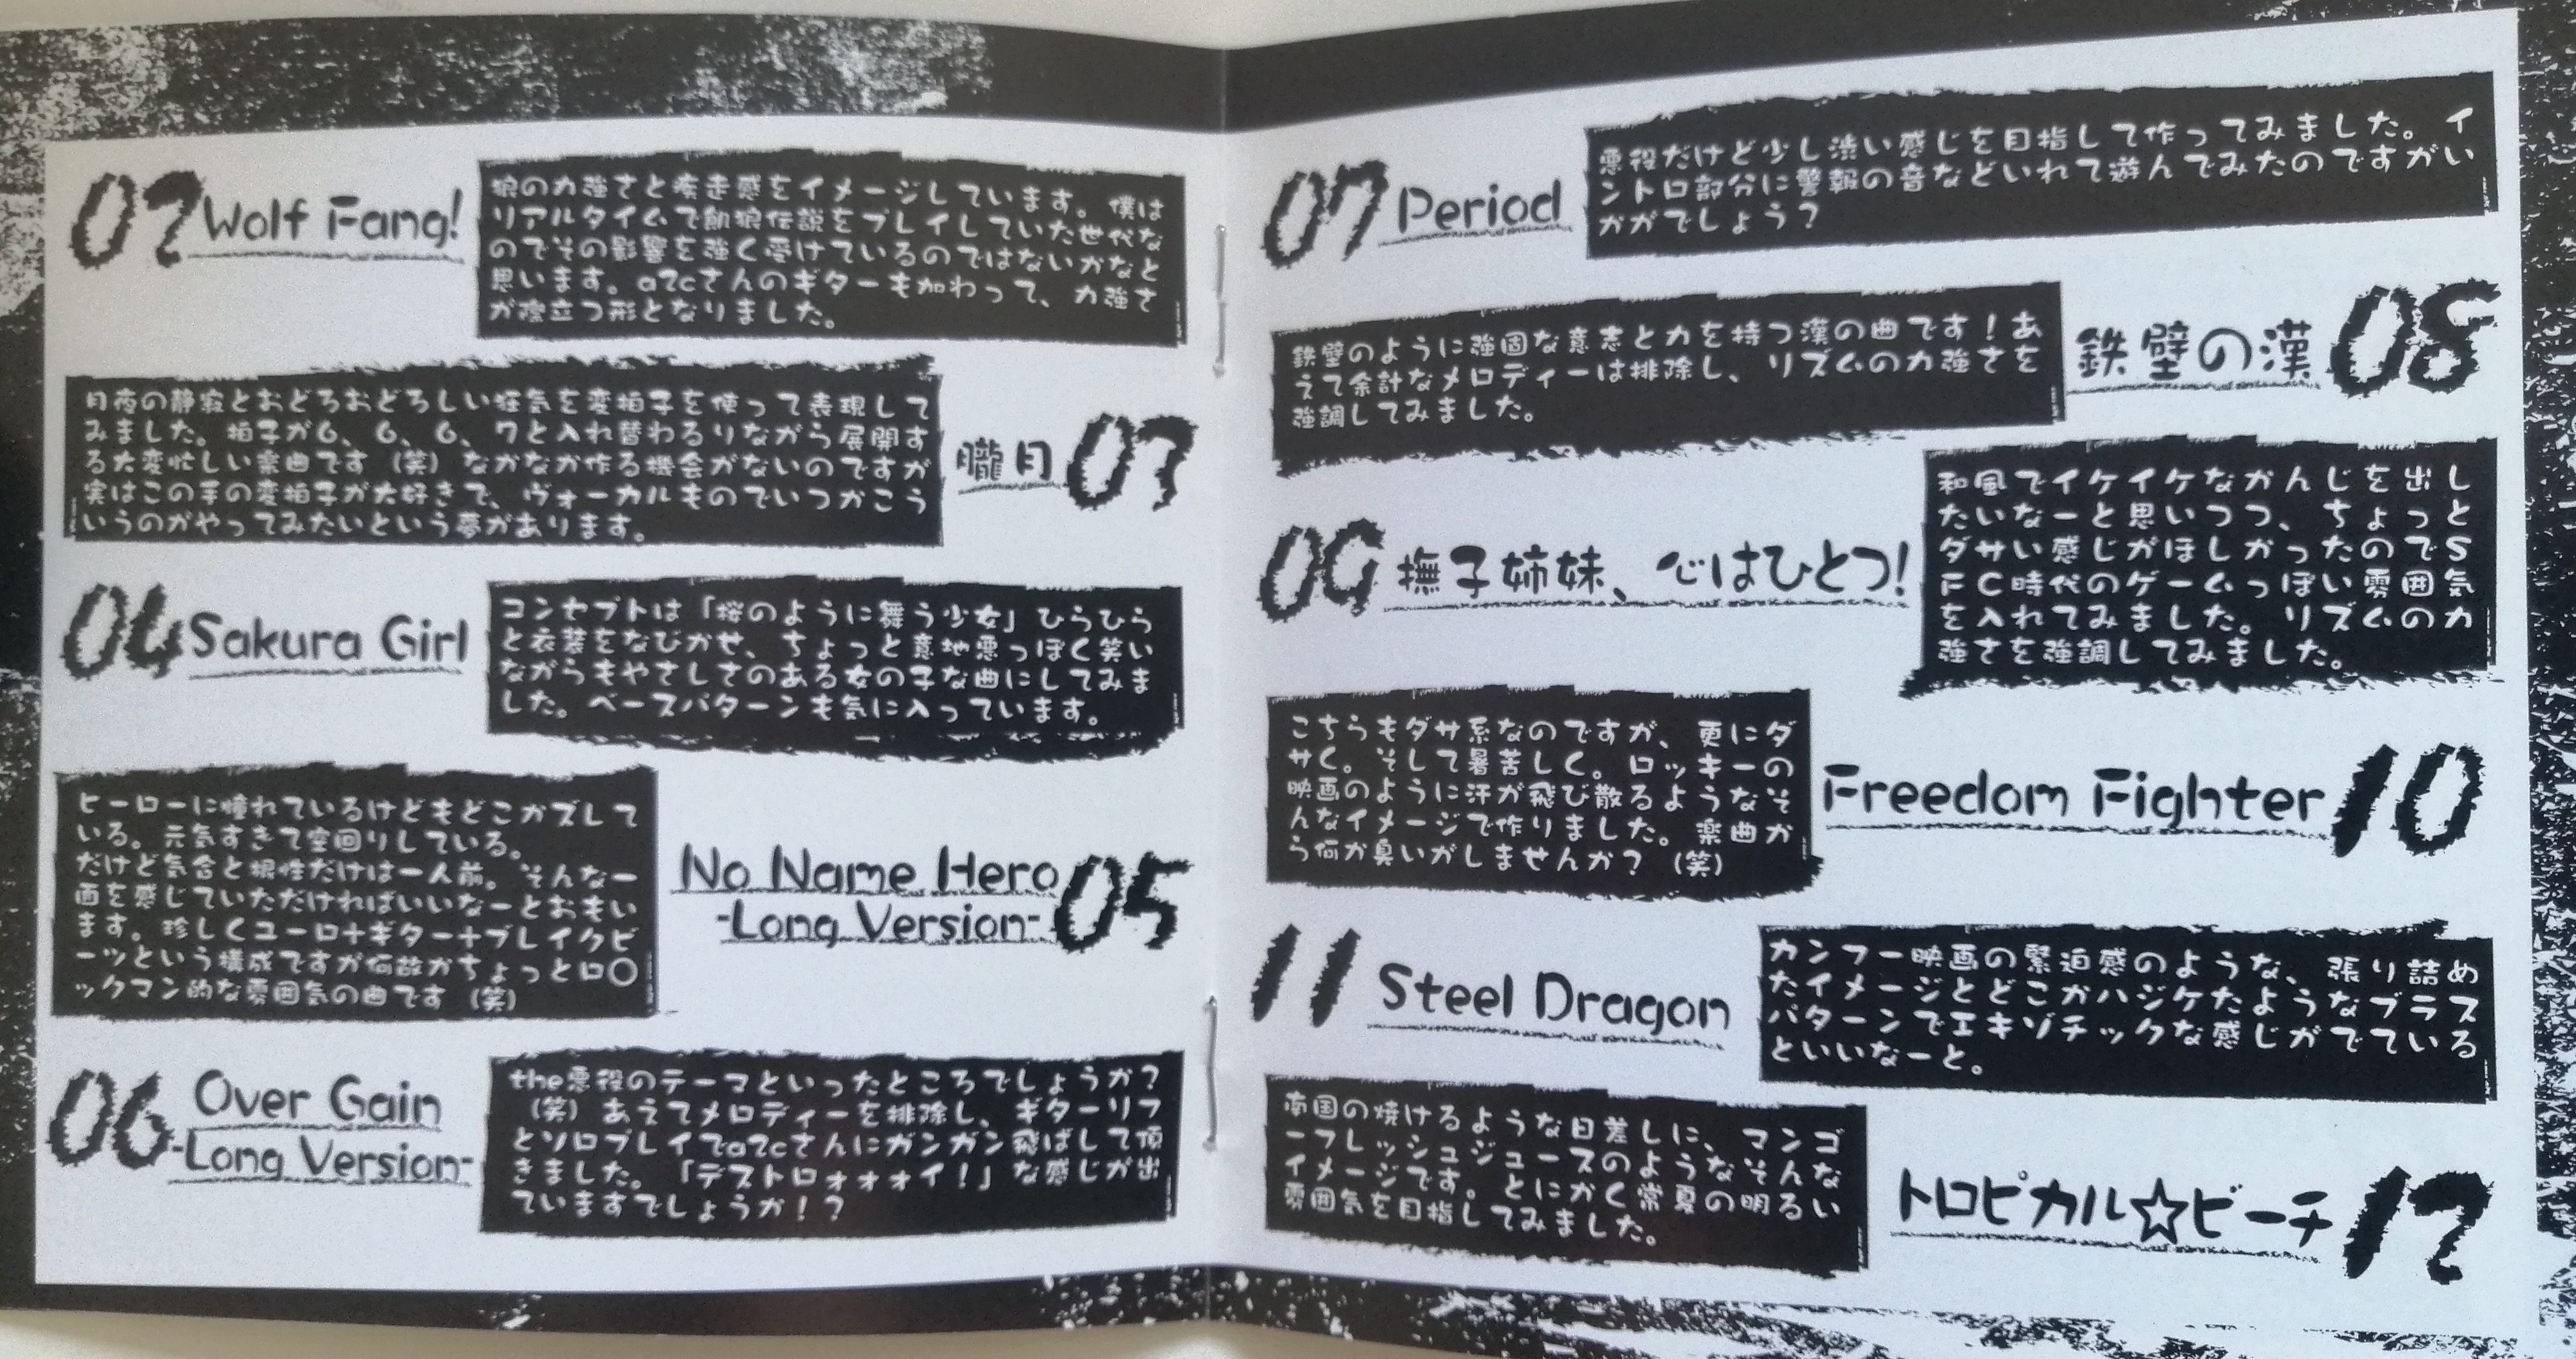 02 Wolf Fang!
狼の力強さと疾走感をイメージしています。僕は
リアルタイムで餓狼伝説をプレイしていた世代な
のでその影響を強く受けているのではないかなと
思います。a2cさんのギターも加わって、力強さ
が際立つ形となりました。
朧月 03
月夜の静寂とおどろおどろしい狂気を変拍子を使って表現して
みました。拍子が6、6、6、7と入れ替わるりながら展開す
る大変忙しい楽曲です（笑）なかなか作る機会がないのですが
実はこの手の変拍子が大好きで、ヴォーカルものでいつかこう
いうのがやってみたいという夢があります。
04 Sakura Girl
コンセプトは「桜のように舞う少女」ひらひら
と衣装をなびかせ、ちょっと意地悪っぽく笑い
ながらもやさしさのある女の子な曲にしてみま
した。ベースパターンも気に入っています。
No Name Hero
-Long Version- 05
ヒーローに憧れているけどもどこかズレして
いる。元気すぎて空回りしている。
だけど気合と根性だけは一人前。そんな一
面を感じていただければいいなーとおもい
ます。珍しくユーロ+ギター+ブレイクビ
ーツという構成ですが何故かちょっとロ〇
ックマン的な雰囲気の曲です（笑）
06 Over Gain
-Long Version-
the悪役のテーマといったところでしょうか？
（笑）あえてメロディーを排除し、ギターリフ
とソロプレイでa2cさんにガンガン飛ばして頂
きました。「デストロォォォイ！」な感じが出
ていますでしょうか！？
07 Period
悪役だけど少し渋い感じを目指して作ってみました。イ
ントロ部分に警報の音などいれて遊んでみたのですがい
かがでしょう？
鉄壁の漢 08
鉄壁のように強固な意志と力を持つ漢の曲です！あ
えて余計なメロディーは排除し、リズムの力強さを
強調してみました。
09 撫子姉妹、心はひとつ!
和風でイケイケなかんじを出し
たいなーと思いつつ、ちょっと
ダサい感じがほしかったのでS
FC時代のゲームっぽい雰囲気
を入れてみました。リズムの力
強さを強調してみました。
Freedom Fighter 10
こちらもダサ系なのですが、更にダ
サく。そして暑苦しく。ロッキーの
映画のように汗が飛び散るようなそ
んなイメージで作りました。楽曲か
ら何か臭いがしませんか？（笑）
11 Steel Dragon
カンフー映画の緊迫感のような、張り詰め
たイメージとどこかハジケたようなブラス
パターンでエキゾチックな感じがでている
といいなーと。
トロピカル☆ビーチ 12
南国の焼けるような日差しに、マンゴ
ーフレッシュジュースのようなそんな
イメージです。とにかく常夏の明るい
雰囲気を目指してみました。